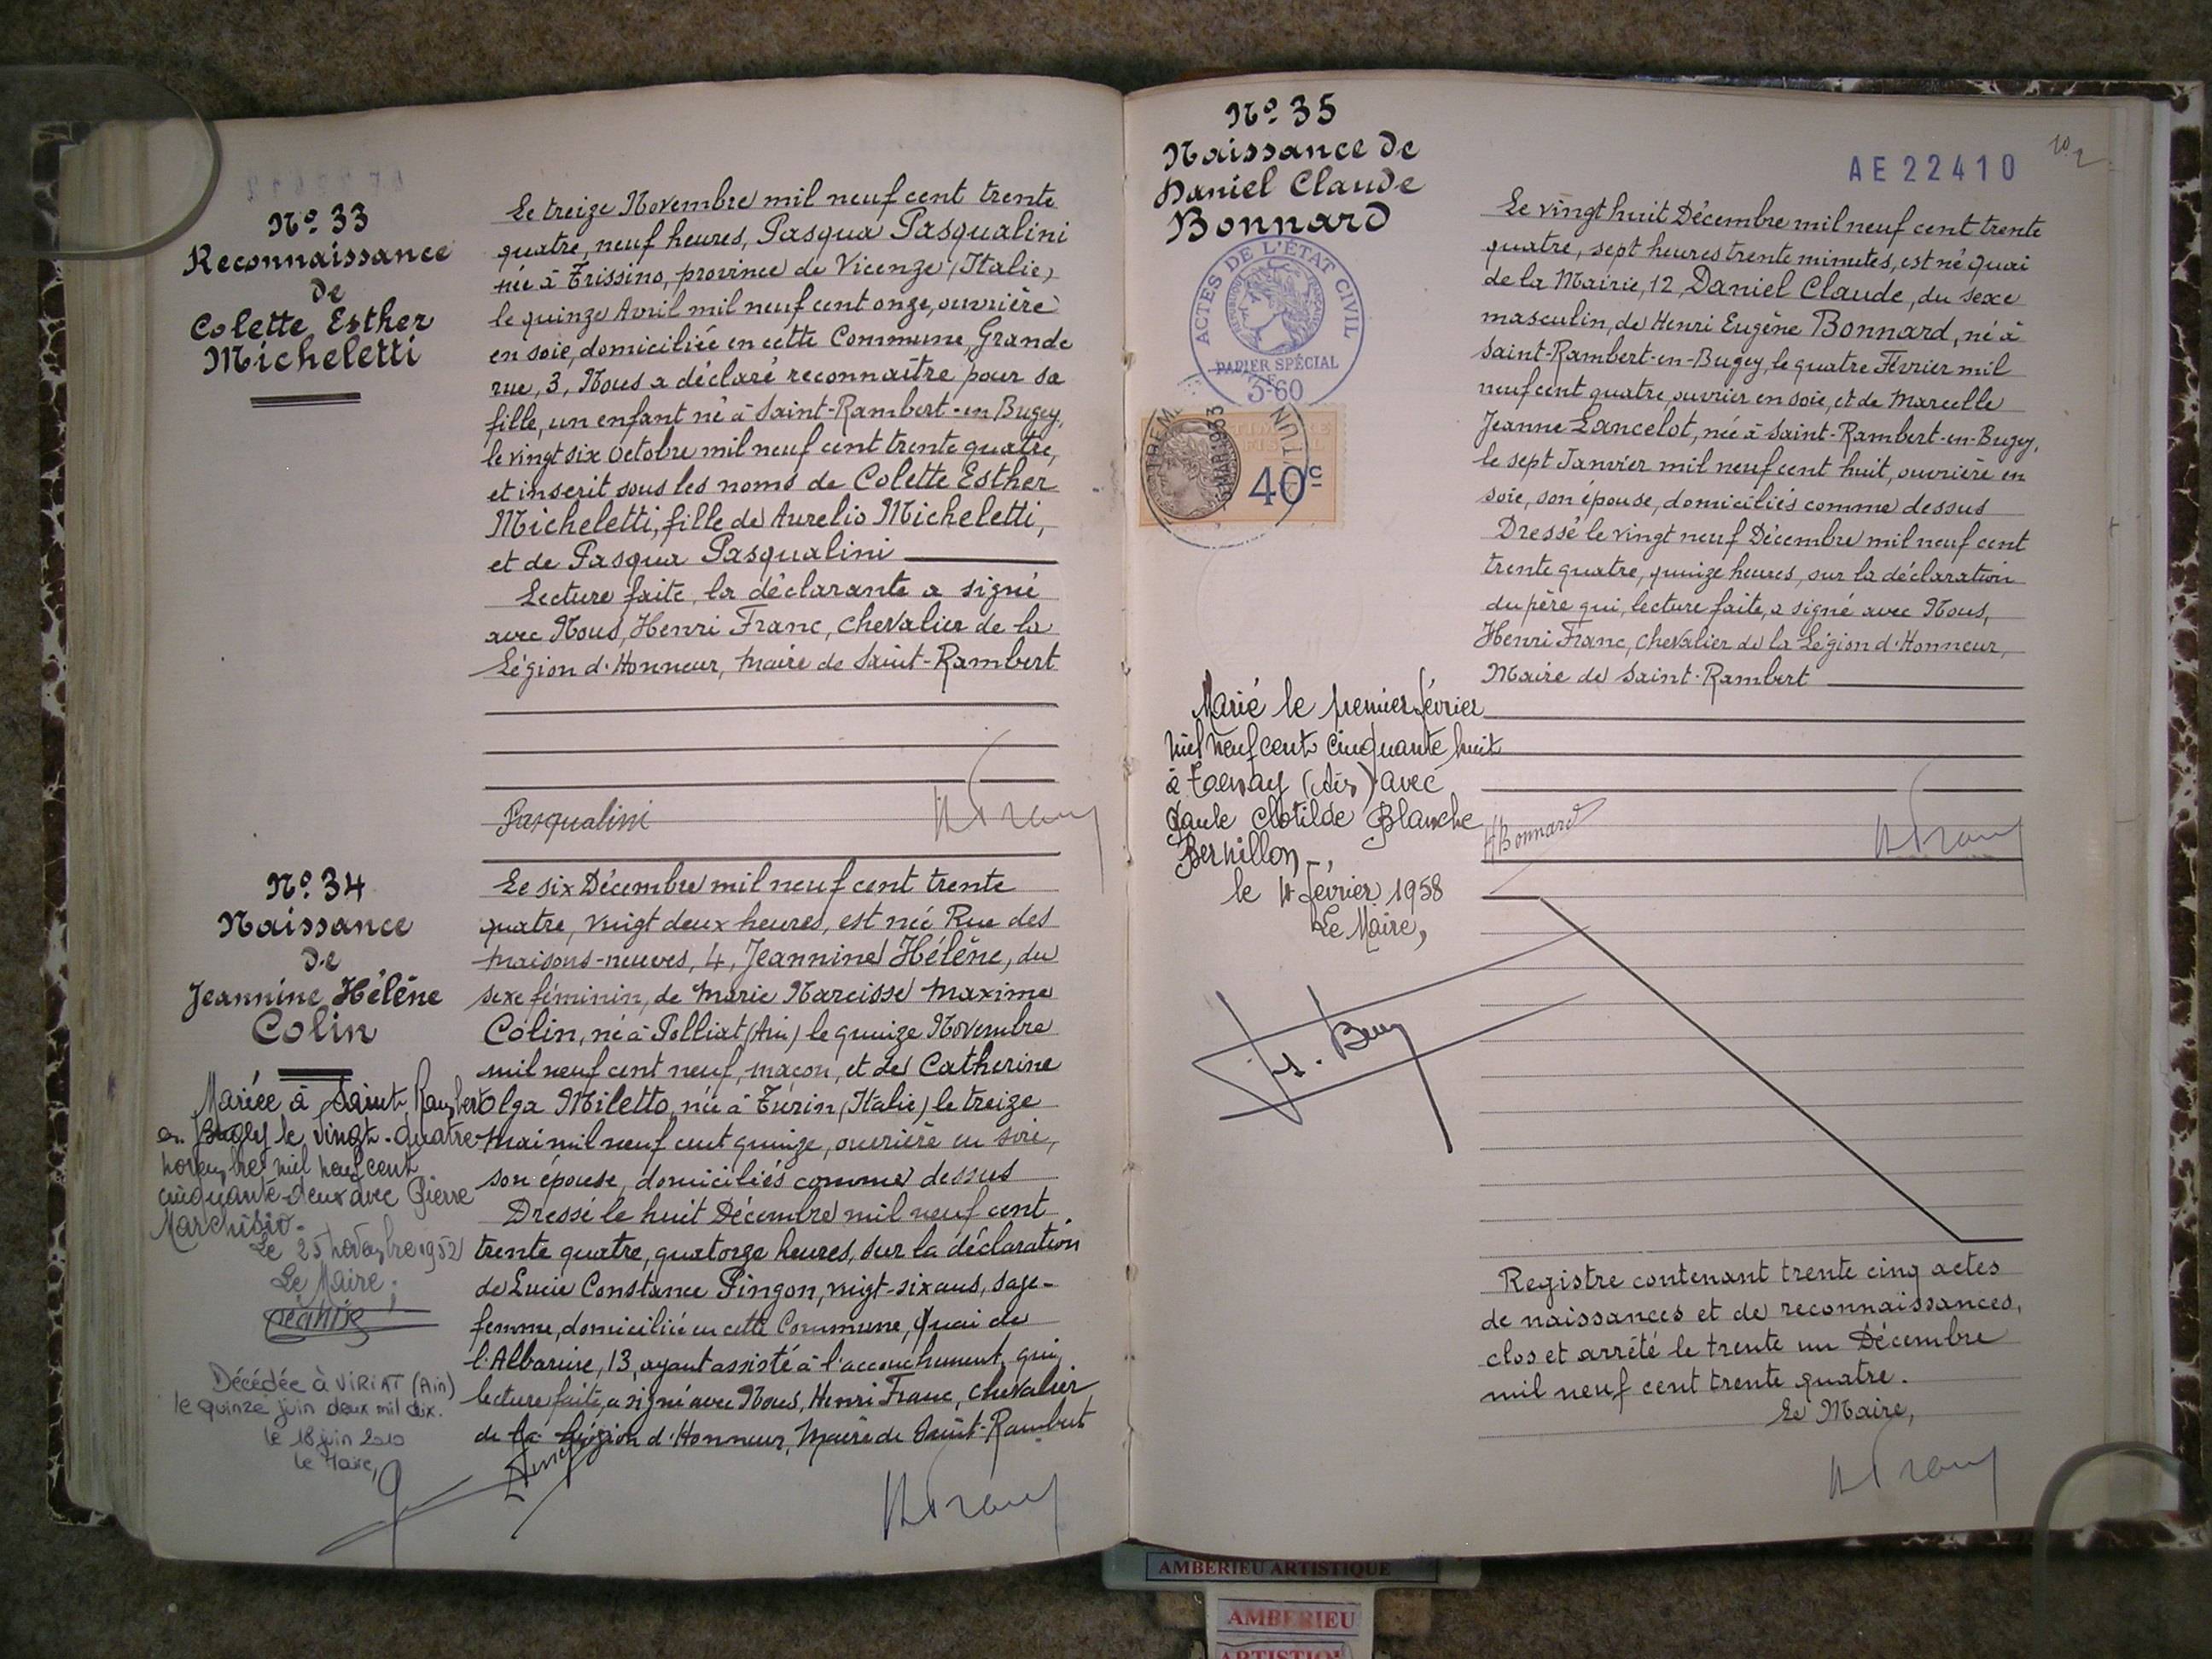 Nº 33
Reconnaissance
de
Colette Esther
Micheletti
Le treize Novembre mil neuf cent trente
quatre, neuf heures, Pasqua Pasqualini
née à Trissino, province de Vicenze (Italie)
le quinze Avril mil neuf cent onze, ouvrière
en soie, domiciliée en cette Commune, Grande
rue, 3, Nous a déclaré reconnaitre pour sa
fille, un enfant né à Saint-Rambert-en-Bugey,
le vingt six Octobre mil neuf cent trente quatre,
et inscrit sous les noms de Colette Esther
Micheletti, fille de Aurelio Micheletti,
et de Pasqua Pasqualini
Lecture faite, la déclarante a signé
avec Nous, Henri Franc, Chevalier de la
Légion d'Honneur, Maire de Saint-Rambert
Pasqualini
H Franc
Nº 34
Naissance
de
Jeannine Hélène
Colin
Mariée à Saint-Rambert
en Bugey le vingt-quatre
novembre mil neuf cent
cinquante-deux avec Pierre
Marchisio.
Le 25 novembre 1952
Le Maire,
Décédée à VIRIAT (Ain)
le quinze juin deux mil dix.
le 18 juin 2010
le Maire,
Le six Décembre mil neuf cent trente
quatre, vingt deux heures, est née Rue des
Maisons-neuves, 4, Jeannine Hélène, du
sexe féminin, de Marie Narcisse Maxime
Colin, né à Polliat (Ain) le quinze Novembre
mil neuf cent neuf, maçon, et de Catherine
Olga Miletto, née à Turin (Italie) le treize
Mai mil neuf cent quinze, ouvrière en soie,
son épouse, domiciliés comme dessus
Dressé le huit Décembre mil neuf cent
trente quatre, quatorze heures, sur la déclaration
de Lucie Constance Pingon, vingt-six ans, sage-
femme, domiciliée en cette Commune, Quai de
l'Albarine, 13, ayant assisté à l'accouchement, qui,
lecture faite, a signé avec Nous, Henri Franc, Chevalier
de la Légion d'Honneur, Maire de Saint-Rambert
H Franc
Nº 35
Naissance de
Daniel Claude
Bonnard
ACTES DE L'ÉTAT CIVIL
RÉPUBLIQUE FRANÇAISE
PAPIER SPÉCIAL
3F60
40c
AE22410
Le vingt huit Décembre mil neuf cent trente
quatre, sept heures trente minutes, est né Quai
de la Mairie, 12, Daniel Claude, du sexe
masculin, de Henri Eugène Bonnard, né à
Saint-Rambert-en-Bugey, le quatre Février mil
neuf cent quatre, ouvrier en soie, et de Marcelle
Jeanne Lancelot, née à Saint-Rambert-en-Bugey,
le sept Janvier mil neuf cent huit, ouvrière en
soie, son épouse, domiciliés comme dessus
Dressé le vingt neuf Décembre mil neuf cent
trente quatre, quinze heures, sur la déclaration
du père qui, lecture faite, a signé avec Nous,
Henri Franc, Chevalier de la Légion d'Honneur,
Maire de Saint-Rambert
Marié le premier février
mil neuf cent cinquante huit
à Tenay (Ain) avec
Paule Clotilde Blanche
Bernillon.
le 4 février 1958
Le Maire,
H Bonnard
H Franc
Registre contenant trente cinq actes
de naissances et de reconnaissances,
clos et arrêté le trente un Décembre
mil neuf cent trente quatre.
Le Maire,
H Franc
AMBERIEU ARTISTIQUE
AMBERIEU
ARTISTIQUE